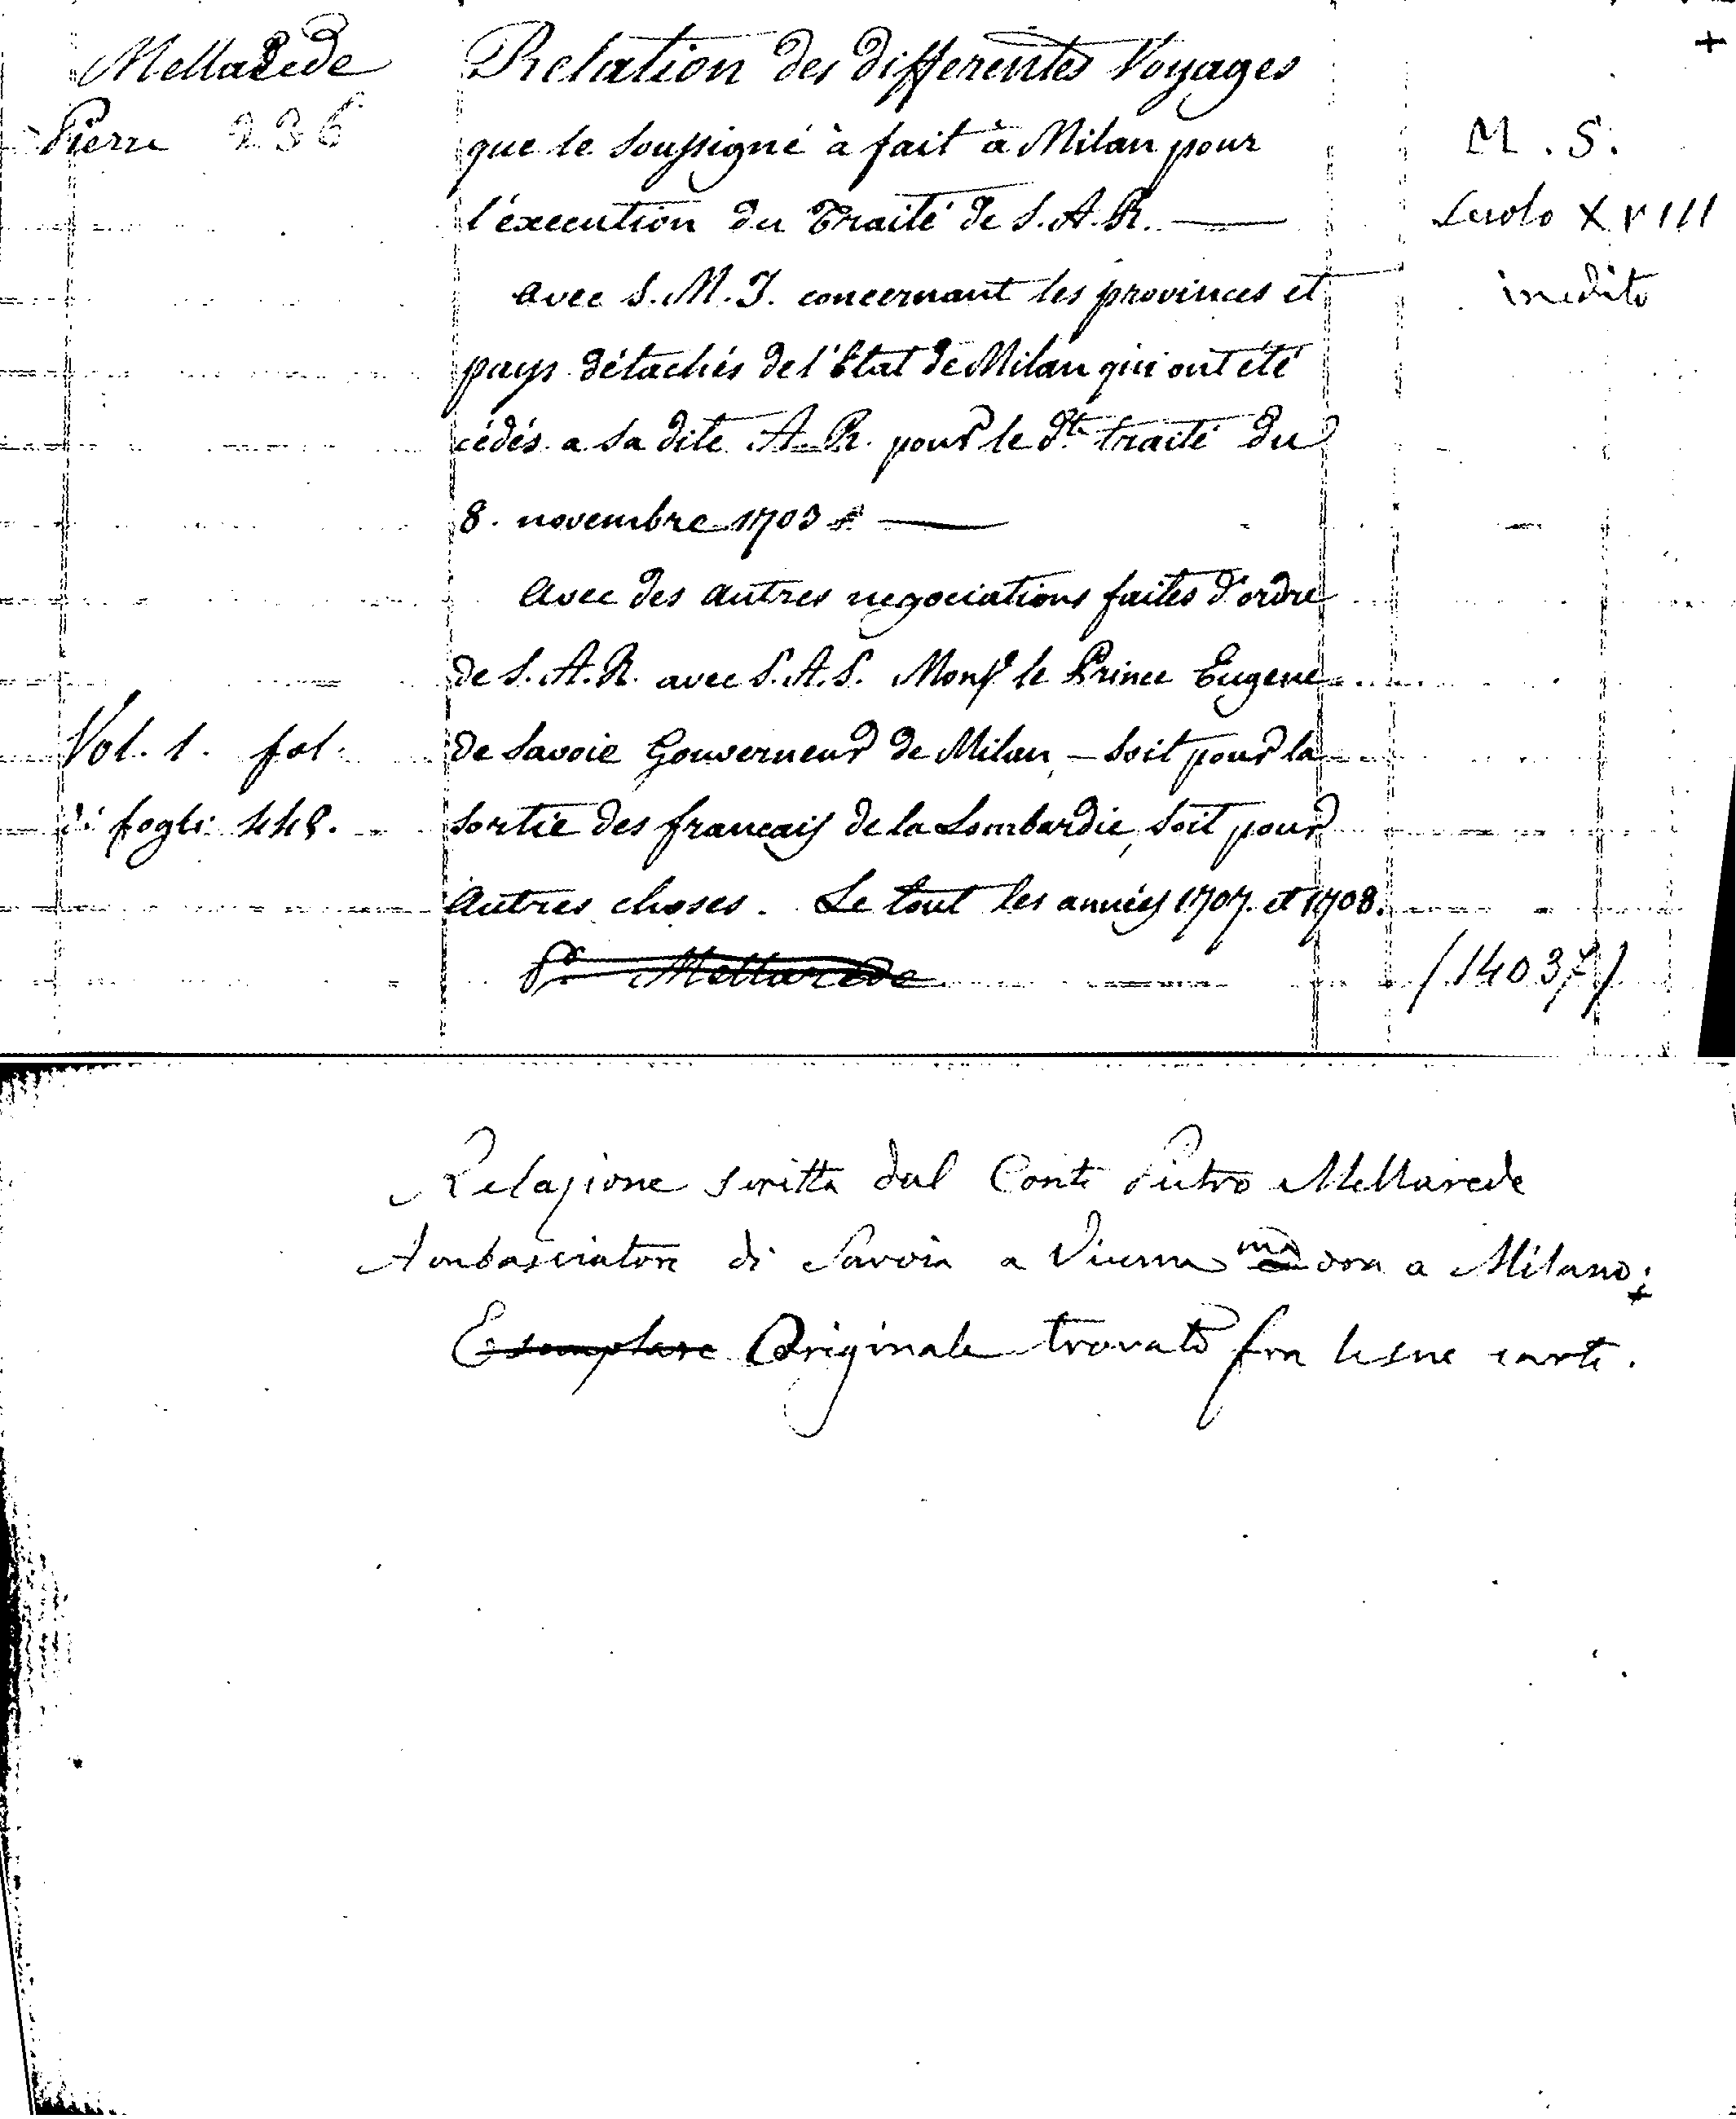 Mellarede
Pierre 236
Relation des differentes Voyages
que le soussigné à fait à Milan pour
l'execution du Traité de S. A. R. —
avec S. M. I. concernant les provinces et
pays détachés de l'Etat de Milan qui ont été
cédés a sa dite A. R. pour le dt. traité du
8. novembre 1703 —
avec des autres negociations faites d'ordre
de S. A. R. avec S. A. S. Monsr le Prince Eugene
de Savoie Gouverneur de Milan, — soit pour la
sortie des francais de la Lombardie, soit pour
autres choses. Le tout les années 1707. et 1708.
Pr. Mellarede
Vol. 1. fol.
di fogli 448.
+
M. S.
Secolo XVIII
inedito
(14037)
Relazione scritta dal Conte Pietro Mellarede
Ambasciatore di Savoia a Vienna ma ora a Milano;
Esemplare Originale trovato fra le sue carte.